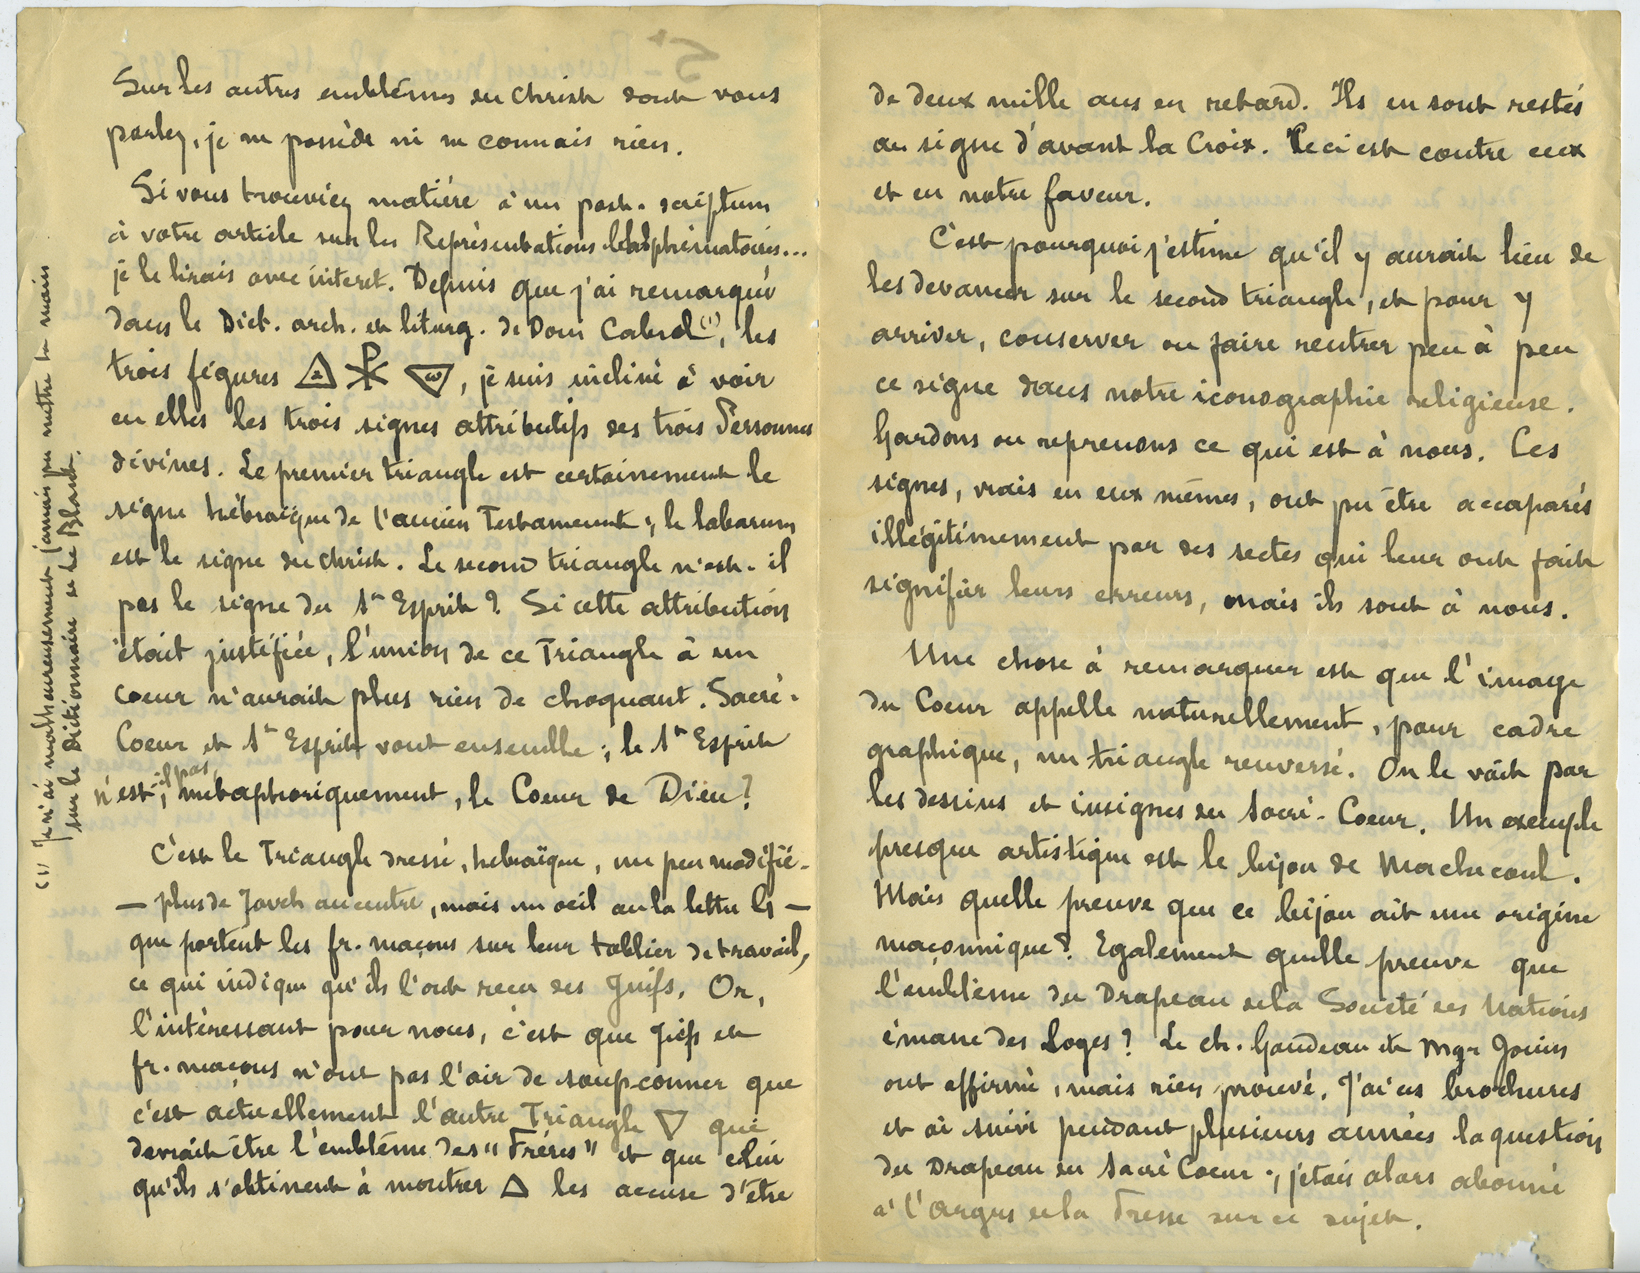 Sur les autres emblêmes du Christ dont vous
parlez, je ne possède ni ne connais rien.
Si vous trouviez matière à un post-scriptum
à votre article sur les Représentations blasphématoires...
je le lirais avec intéret. Depuis que j'ai remarqué
dans le Dict. arch. et liturg. de Dom Cabrol (1), les
trois figures △ ☧ ▽, je suis incliné à voir
en elles les trois signes attributifs des trois Personnes
divines. Le premier triangle est certainement le
signe hébraïque de l'ancien Testament ; le labarum
est le signe du Christ. Le second triangle n'est-il
pas le signe du St Esprit ? Si cette attribution
était justifiée, l'union de ce Triangle à un
coeur n'aurait plus rien de choquant. Sacré-
Coeur et St Esprit vont ensemble ; le St Esprit
n'est-il pas, métaphoriquement, le Coeur de Dieu ?
C'est le Triangle dressé, hebraïque, un peu modifié -
— plus de Javeh au centre, mais un oeil ou la lettre G —
que portent les fr. maçons sur leur tablier de travail,
ce qui indique qu'ils l'ont reçu des Juifs. Or,
l'intéressant pour nous, c'est que Juifs et
fr. maçons n'ont pas l'air de soupçonner que
c'est actuellement l'autre Triangle ▽ qui
devrait être l'emblême des "Frères" et que celui
qu'ils s'obtinent à montrer △ les accuse d'être
(1) Je n'ai malheureusement jamais pu mettre la main
sur le Dictionnaire au Blanc.
de deux mille ans en retard. Ils en sont restés
au signe d'avant la Croix. Ceci est contre eux
et en notre faveur.
C'est pourquoi j'estime qu'il y aurait lieu de
les devancer sur le second triangle, et pour y
arriver, conserver ou faire rentrer peu à peu
ce signe dans notre iconographie religieuse.
Gardons ou reprenons ce qui est à nous. Ces
signes, vrais en eux mêmes, ont pu être accaparés
illégitimement par des sectes qui leur ont fait
signifier leurs erreurs, mais ils sont à nous.
Une chose à remarquer est que l'image
du Coeur appelle naturellement, pour cadre
graphique, un triangle renversé. On le voit par
les dessins et insignes du Sacré-Coeur. Un exemple
presque artistique est le bijou de Machecoul.
Mais quelle preuve que ce bijou ait une origine
maçonnique ? Egalement quelle preuve que
l'emblème du Drapeau de la Société des Nations
émane des Loges ? Le ch. Gaudeau et Mgr Jouin
ont affirmé, mais rien prouvé. J'ai us brochures
et ai suivi pendant plusieurs années la question
du Drapeau du Sacré Coeur ; j'étais alors abonné
à l'Argus de la Presse sur ce sujet.